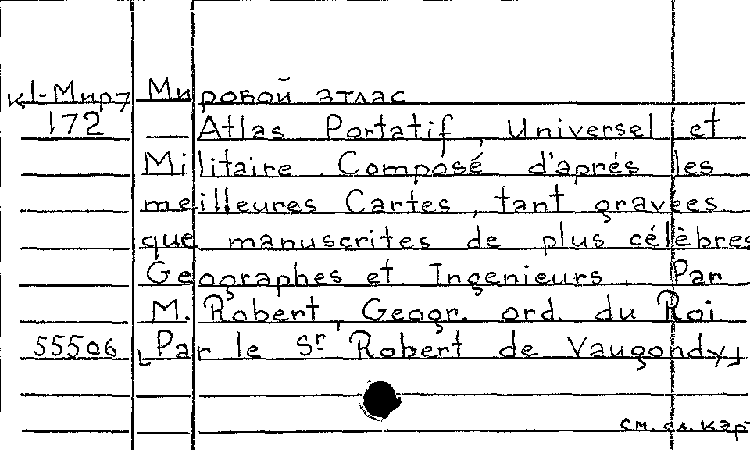 к1-Мир7 Мировой атлас
172 — Atlas Portatif, Universel et
Militaire. Composé d'aprés les
meilleures Cartes, tant gravées
que manuscrites de plus célèbres
Geographes et Ingenieurs. Par
M. Robert, Geogr. ord. du Roi
55506 [Par le Sr Robert de Vaugondy]
см. сл. кар